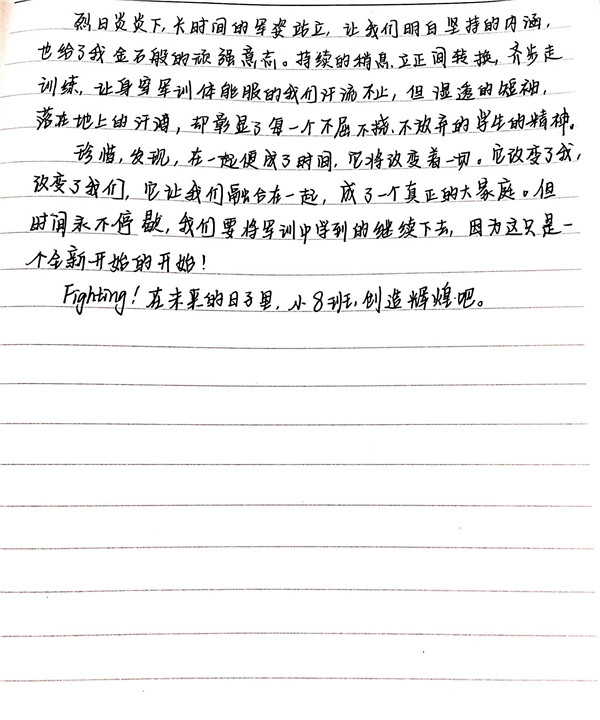 烈日炎炎下,长时间的军姿站立,让我们明白坚持的内涵,
也给了我金石般的顽强意志。持续的稍息、立正间转换,齐步走
训练,让身穿军训体能服的我们汗流不止,但湿透的短袖,
落在地上的汗滴,却彰显了每一个不屈不挠、不放弃的学生的精神。
珍惜,发现,在一起便成了时间,它将改变着一切。它改变了我,
改变了我们,它让我们融合在一起,成了一个真正的大家庭。但
时间永不停歇,我们要将军训中学到的继续下去,因为这只是一
个全新开始的开始!
Fighting!在未来的日子里,小8班,创造辉煌吧。